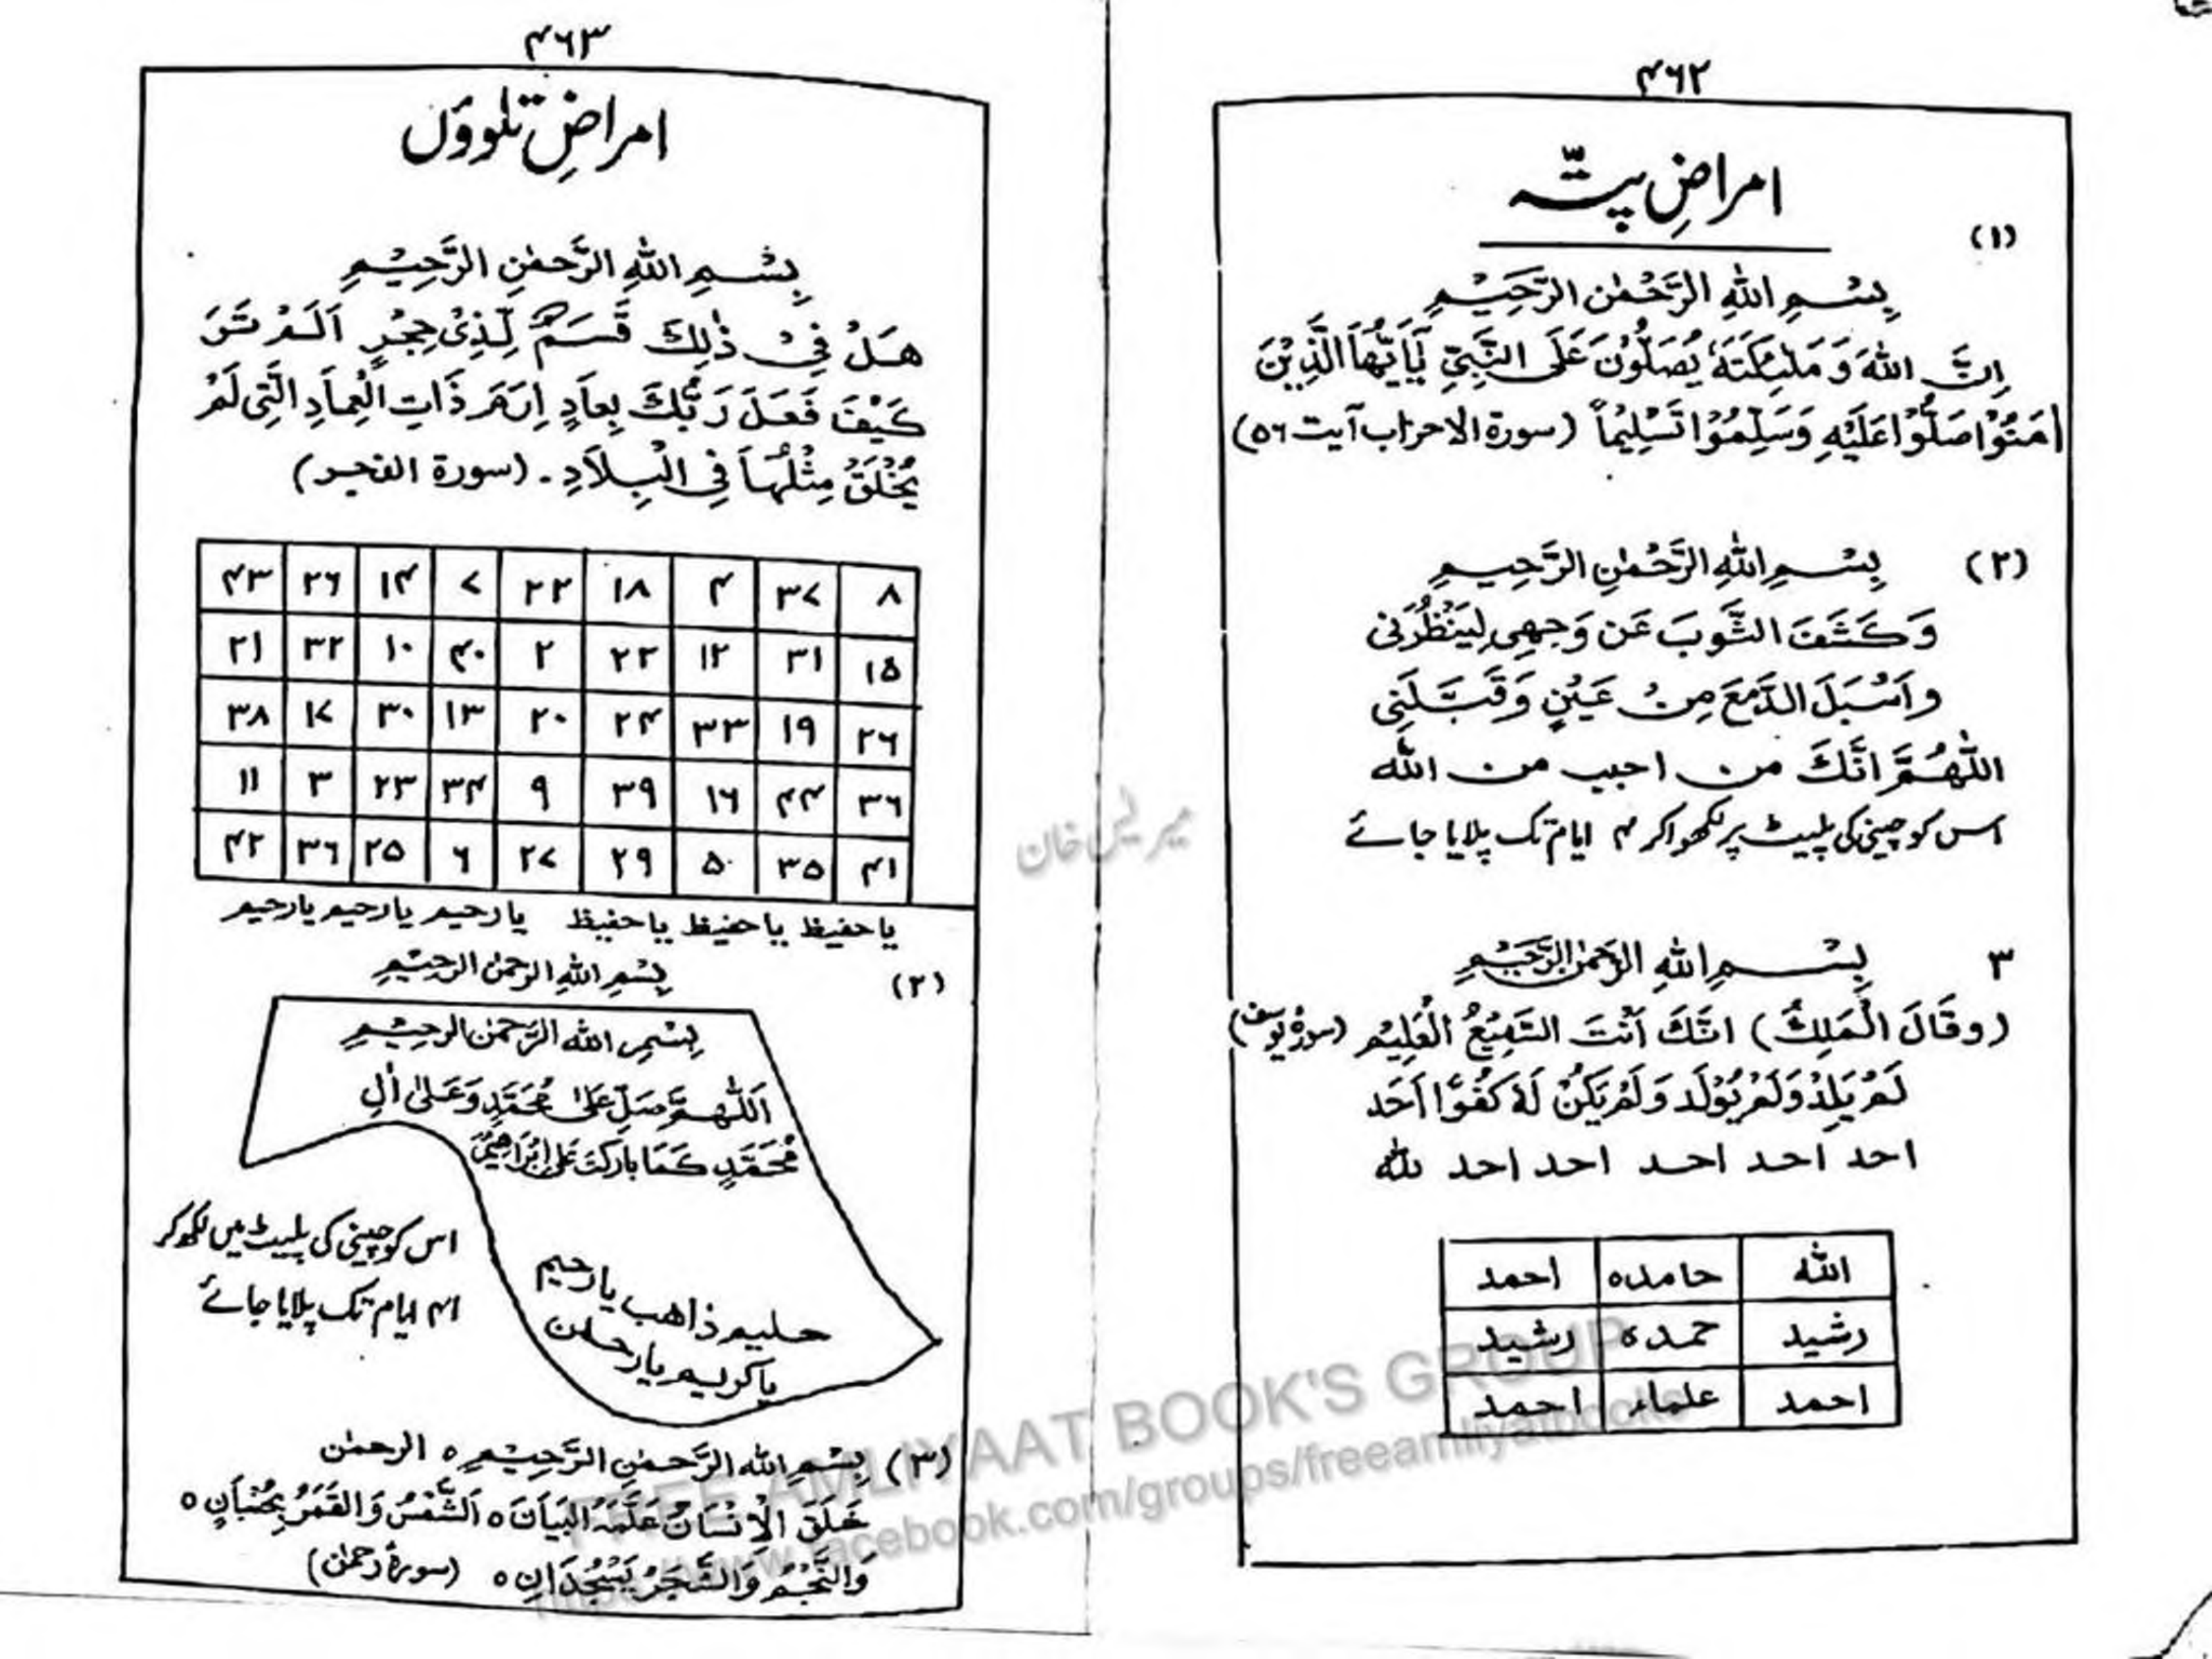 ۴۶۲
امراضِ پتّہ
(۱)
بِسْمِ اللهِ الرَّحْمٰنِ الرَّحِيْمِ
اِنَّ اللهَ وَ مَلٰٓئِكَتَهٗ يُصَلُّوْنَ عَلَى النَّبِيِّ يٰٓاَيُّهَا الَّذِيْنَ
اٰمَنُوْا صَلُّوْا عَلَيْهِ وَسَلِّمُوْا تَسْلِيْمًا (سورة الاحزاب آیت ۵۶)
(۲) بِسْمِ اللهِ الرَّحْمٰنِ الرَّحِيْمِ
وَكَشَفَ الثَّوبَ عَن وَجهِى لِيَنْظُرَنى
وَاَسْبَلَ الدَّمعَ مِنْ عَيْنٍ وَقَبَّلَنِى
اللّٰهُمَّ اَنَّكَ من احبيب من الله
اس کو چینی کی پلیٹ پر لکھوا کر ۴ ایام تک پلایا جائے
۳ بِسْمِ اللهِ الرَّحْمٰنِ الرَّحِيْمِ
(وقَالَ الْمَلِكُ) انَّكَ اَنْتَ السَّمِيْعُ الْعَلِيْم (سورۃ یوسف)
لَمْ يَلِدْ وَلَمْ يُوْلَد وَلَمْ يَكُنْ لَهٗ كُفُوًا اَحَد
احد احد احد احد احد لله
الله حامده احمد
رشيد حمده رشيد
احمد علماء احمد
۴۶۳
امراضِ تلووٴں
بِسْمِ اللهِ الرَّحْمٰنِ الرَّحِيْمِ
هَلْ فِيْ ذٰلِكَ قَسَمٌ لِّذِيْ حِجْرٍ اَلَمْ تَرَ
كَيْفَ فَعَلَ رَبُّكَ بِعَادٍ اِرَمَ ذَاتِ الْعِمَادِ الَّتِى لَمْ
يُخْلَقْ مِثْلُهَا فِي الْبِلَادِ۔ (سورة الفجر)
۸ ۳۷ ۴ ۱۸ ۲۲ ۷ ۱۴ ۲۶ ۴۳
۱۵ ۳۱ ۱۲ ۲۲ ۲ ۴۰ ۱۰ ۳۲ ۲۱
۲۶ ۱۹ ۳۳ ۲۴ ۲۰ ۱۳ ۳۰ ۱۷ ۳۸
۳۶ ۴۴ ۱۶ ۳۹ ۹ ۳۴ ۲۳ ۳ ۱۱
۴۱ ۳۵ ۵۰ ۲۹ ۲۷ ۶ ۲۵ ۳۶ ۴۲
یا حفیظ یا حفیظ یا حفیظ یا رحیم یا رحیم یا رحیم
(۲) بِسْمِ اللهِ الرحمٰن الرحيم
بِسْمِ الله الرَّحمٰن الرحيم
اَللّٰهُمَّ صَلِّ عَلىٰ مُحَمَّدٍ وَعَلىٰ اٰلِ
مُحَمَّدٍ كَمَا بَارَكتَ عَلىٰ اِبْرَاهِيْمَ
یا رحیم
حلیم ذاھب
یا کریم یا رحمٰن
اس کو چینی کی پلیٹ میں لکھ کر
۴۱ ایام تک پلایا جائے
(۳) بِسْمِ الله الرَّحمٰنِ الرَّحِيْمِ ٥ الرحمٰن
خَلَقَ الْاِنْسَانَ عَلَّمَهُ الْبَيَانَ ٥ اَلشَّمْسُ وَالقَمَرُ بِحُسْبَانٍ ٥
وَالنَّجْمُ وَالشَّجَرُ يَسْجُدَانِ ٥ (سورۂ رحمٰن)
میر یس خان
FREE AMLIYAAT BOOK'S GROUP
http://www.facebook.com/groups/freeamliyatbooks